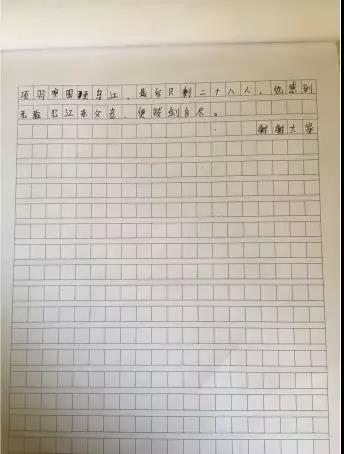 项羽突围至乌江，最后只剩二十八人，他感到
无脸见江东父老，便拔剑自尽。
谢谢大家